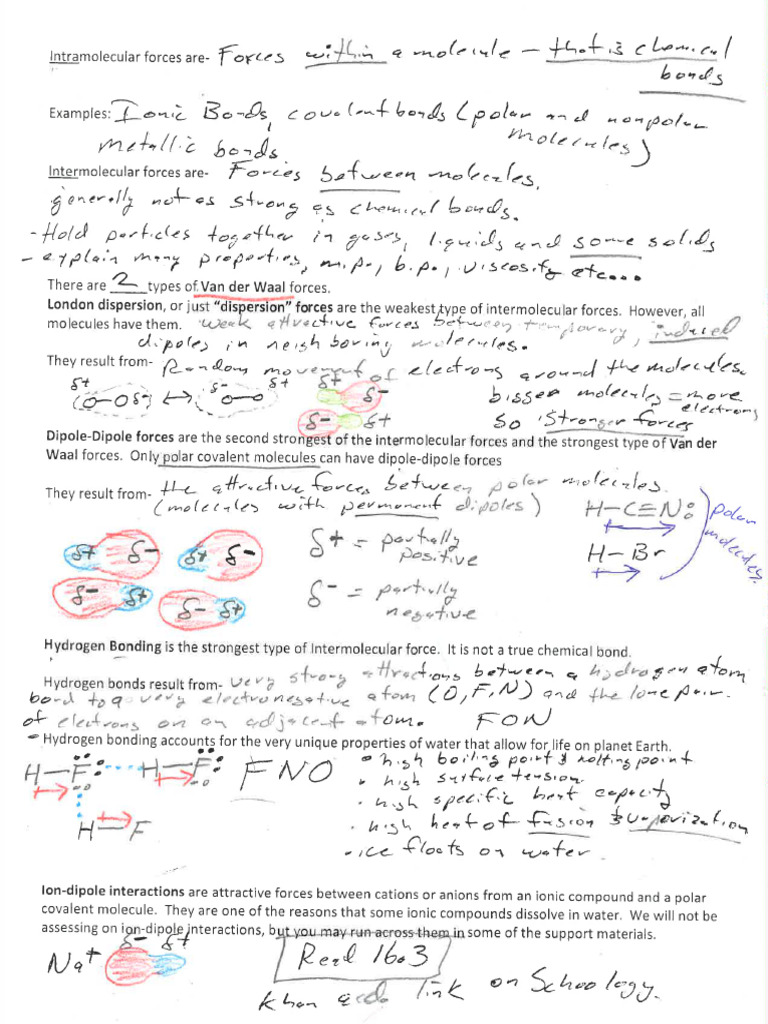 Intramolecular forces are- Forces within a molecule - that is chemical
bonds
Examples: Ionic Bonds, covalent bonds (polar and nonpolar
molecules)
metallic bonds.
Intermolecular forces are- Forces between molecules,
generally not as strong as chemical bonds.
- Hold particles together in gases, liquids and some solids
- explain many properties, m.p., b.p., viscosity etc...
There are 2 types of Van der Waal forces.
London dispersion, or just "dispersion" forces are the weakest type of intermolecular forces. However, all
molecules have them. weak attractive forces between temporary, induced
dipoles in neighboring molecules.
They result from- Random movement of electrons around the molecules.
δ+ (O-O δ-) ↔ δ- (O-O) δ+ δ+ δ- bigger molecules = more
electrons
δ- δ+ so stronger forces
Dipole-Dipole forces are the second strongest of the intermolecular forces and the strongest type of Van der
Waal forces. Only polar covalent molecules can have dipole-dipole forces
They result from- the attractive forces between polar molecules.
(molecules with permanent dipoles) H-C≡N: polar
molecules.
δ+ δ- δ+ δ- δ+ = partially
positive H-Br
δ- δ+ δ- δ+ δ- = partially
negative
Hydrogen Bonding is the strongest type of Intermolecular force. It is not a true chemical bond.
Hydrogen bonds result from- very strong attractions between a hydrogen atom
bond to a very electronegative atom (O,F,N) and the lone pair
of electrons on an adjacent atom. FON
- Hydrogen bonding accounts for the very unique properties of water that allow for life on planet Earth.
H-F: H-F: FNO • high boiling point & melting point
• high surface tension
• high specific heat capacity
H-F • high heat of fusion & vaporization
- ice floats on water
Ion-dipole interactions are attractive forces between cations or anions from an ionic compound and a polar
covalent molecule. They are one of the reasons that some ionic compounds dissolve in water. We will not be
assessing on ion-dipole interactions, but you may run across them in some of the support materials.
Na+ δ- δ+ Read 16.3
Khan acad. link on Schoology.